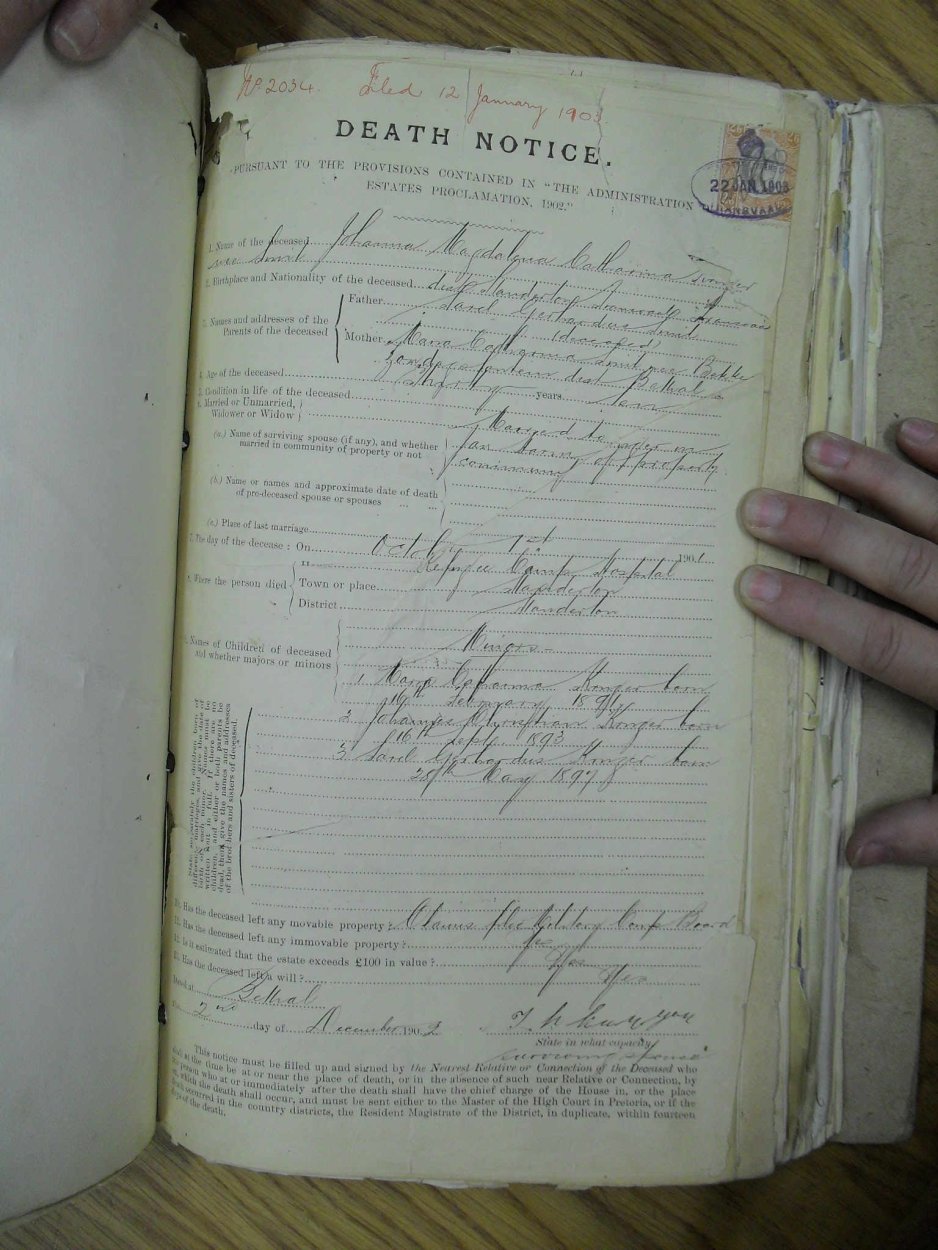 No 2034. Filed 12 January 1903
DEATH NOTICE.
PURSUANT TO THE PROVISIONS CONTAINED IN "THE ADMINISTRATION
ESTATES PROCLAMATION, 1902."
22 JAN 1903
TRANSVAAL
1. Name of the deceased Johanna Magdalena Catharina
nee Smit
2. Birthplace and Nationality of the deceased dist Standerton Transvaal
3. Names and addresses of the Parents of the deceased
Father Sarel Gerhardus Smit
(deceased)
Mother Maria Catharina Smit nee
dist Bethal
4. Age of the deceased Thirty years
5. Condition in life of the deceased
6. Married or Unmarried, Widower or Widow Married
(a.) Name of surviving spouse (if any), and whether
married in community of property or not
in
community of property
(b.) Name or names and approximate date of death
of pre-deceased spouse or spouses
(c.) Place of last marriage
7. The day of the decease : On October 1st 1901
8. Where the person died
Refugee Camp Hospital
Town or place Standerton
District Standerton
9. Names of Children of deceased
and whether majors or minors
Minors
1 Maria Catharina born
16th February
2 Johannes born
16th Sept 1893
3 Sarel Gerhardus born
28th May 1897
State separately the children born of
different marriages, and give the date of
birth of each minor. Names must be
written out in full. If there are no
children, and either or both parents be
dead, then give the names and addresses
of the brothers and sisters of deceased.
10. Has the deceased left any movable property? Claims Military Comp Board
11. Has the deceased left any immovable property? Yes
12. Is it estimated that the estate exceeds £100 in value? Yes
13. Has the deceased left a will? Yes
Dated at Bethal
the 2nd day of December 1902
State in what capacity
surviving spouse
This notice must be filled up and signed by the Nearest Relative or Connection of the Deceased who
shall at the time be at or near the place of death, or in the absence of such near Relative or Connection, by
the person who at or immediately after the death shall have the chief charge of the House in, or the place
on, which the death shall occur, and must be sent either to the Master of the High Court in Pretoria, or if the
death occurred in the country districts, the Resident Magistrate of the District, in duplicate, within fourteen
days of the death.